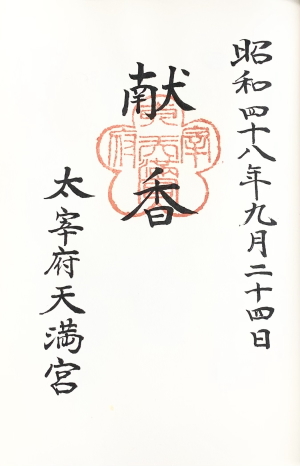 昭和四十八年九月二十四日
献香
太宰府天満宮